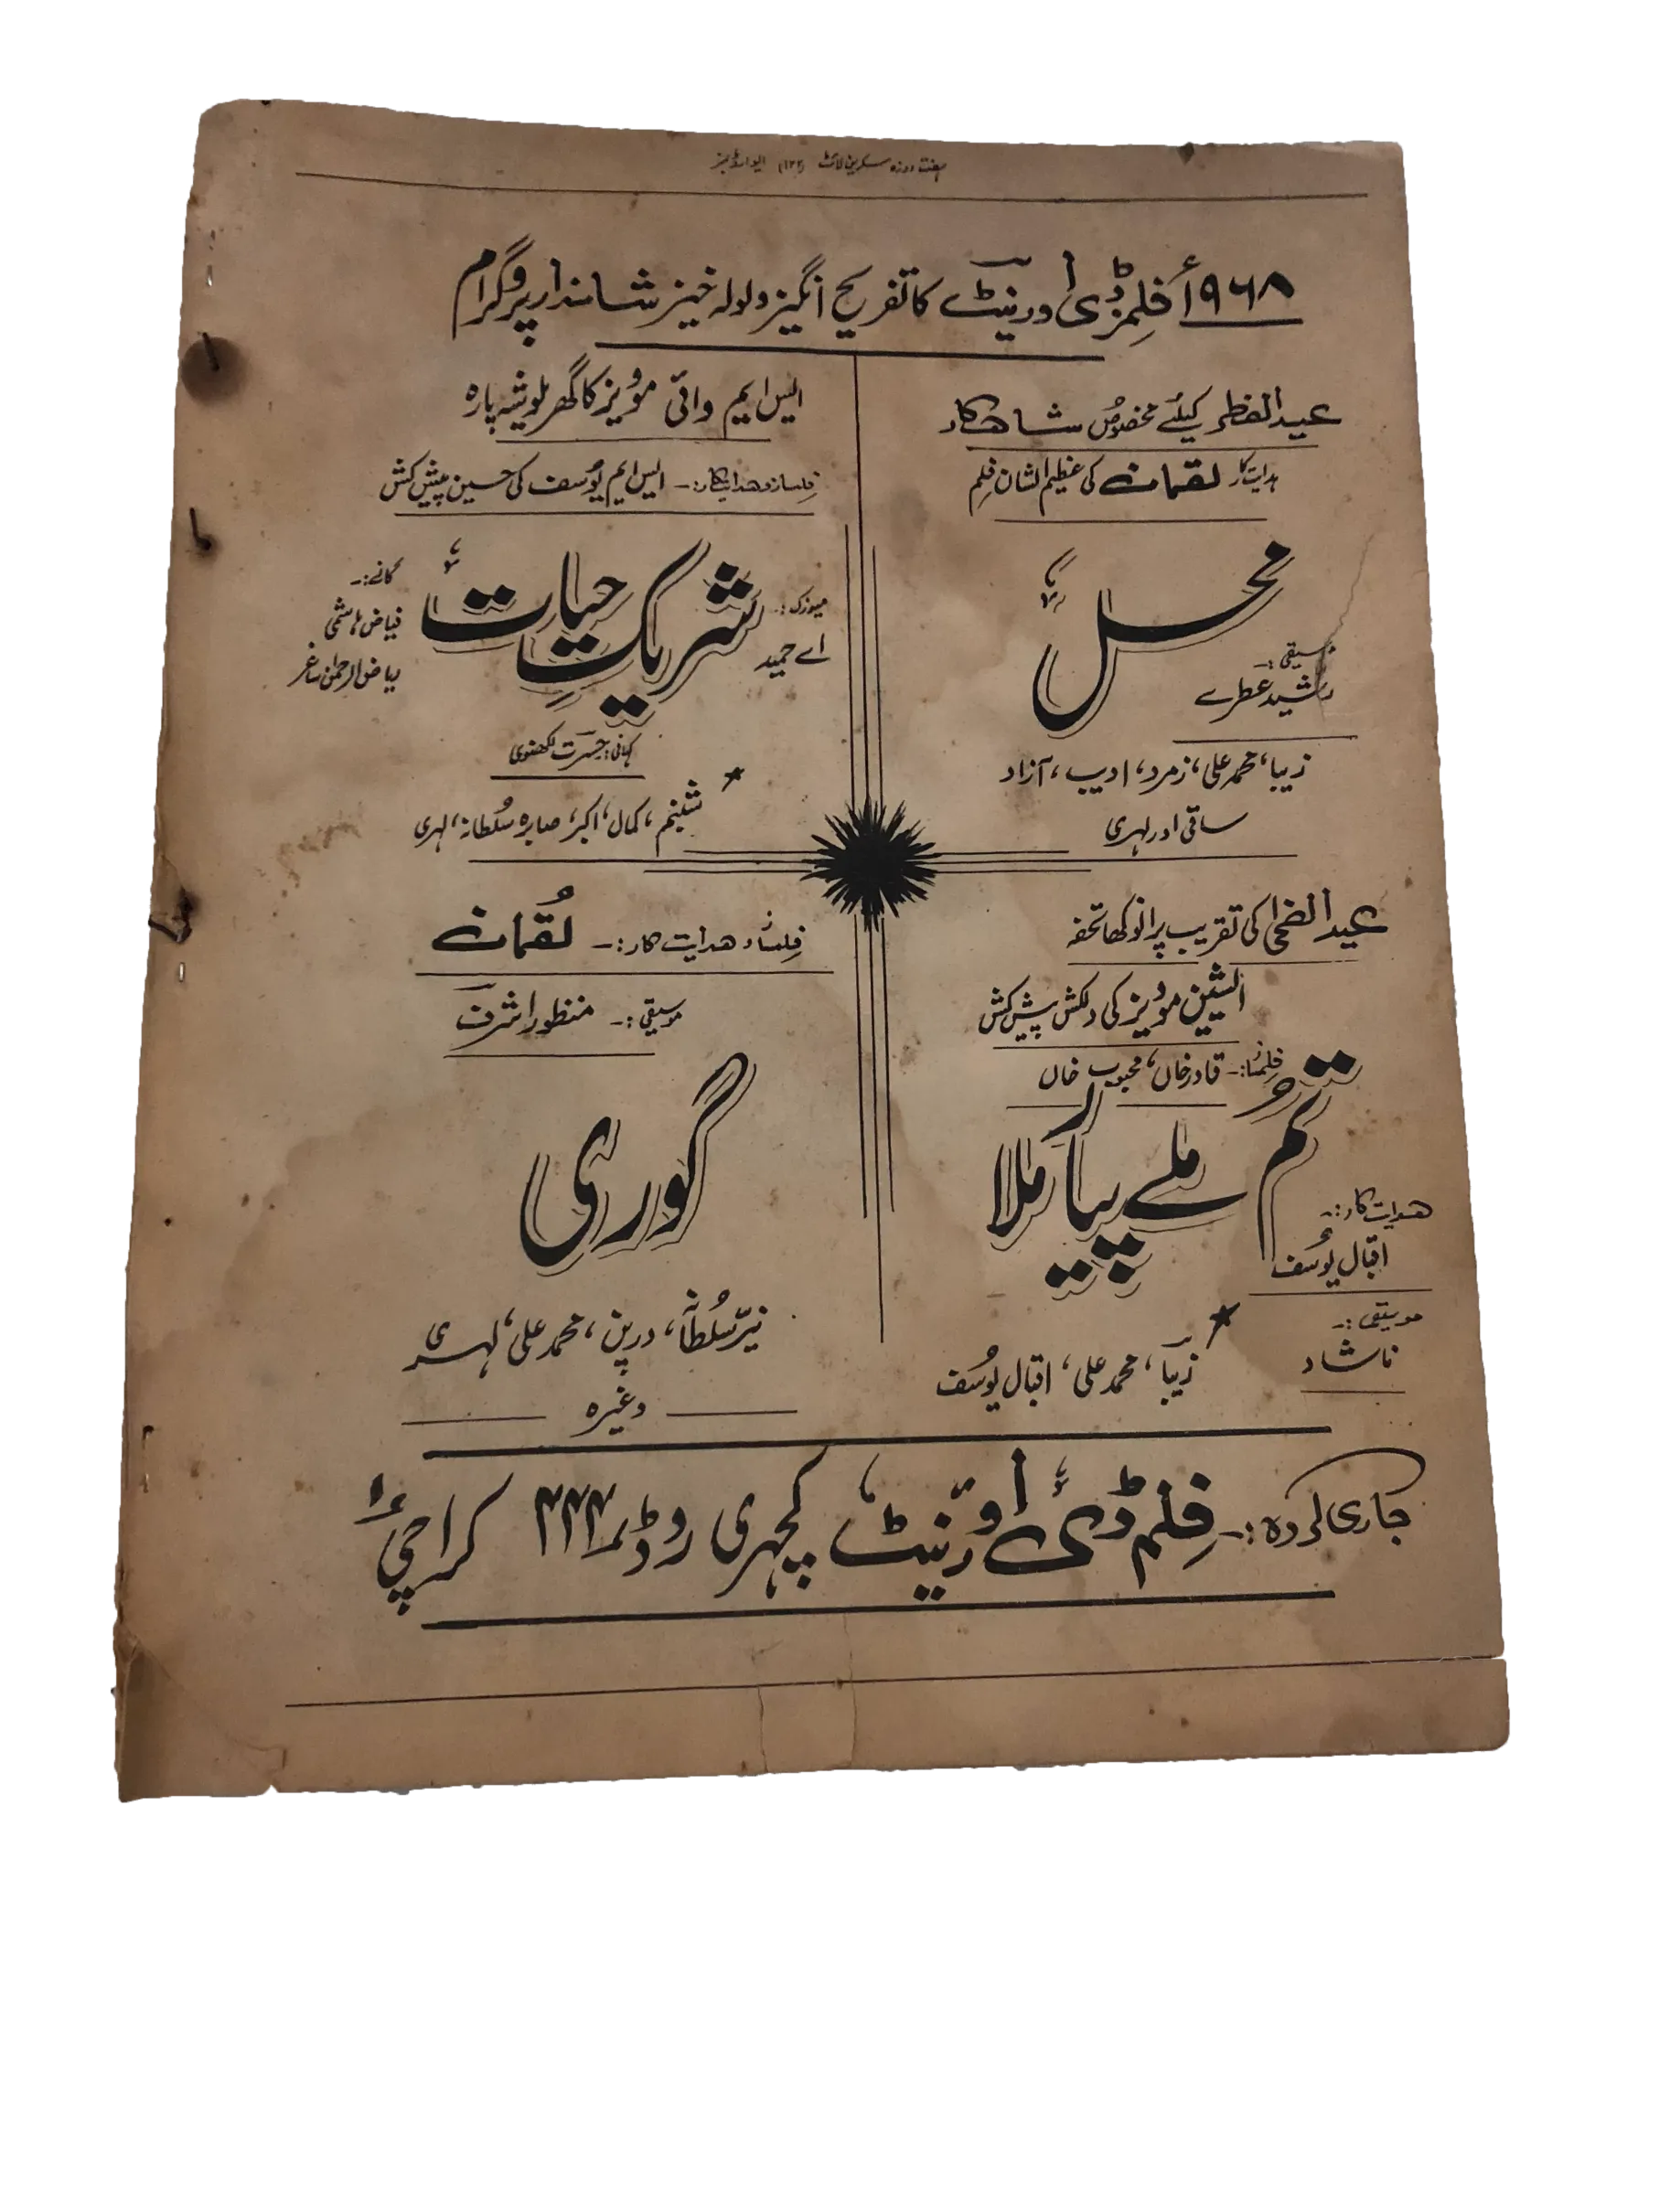 ہفت روزہ سکرین لائٹ (۱۲۲) ایوارڈ نمبر
۱۹۶۸ء فلمز ڈی اورنیٹ کا تفریح انگیز ولولہ خیز شاندار پروگرام
عید الفطر کیلئے مخصوص شاھکار
ہدایت کار لقمان کی عظیم الشان فلم
محل
موسیقی :۔
رشید عطرے
زیبا، محمد علی، زمرد، ادیب، آزاد
ساقی اور لہری
ایس ایم وائی موویز کا گھریلو شہ پارہ
فلمساز و ھدایتکار :۔ ایس ایم یوسف کی حسین پیش کش
شریکِ حیات
میوزک :۔
اے حمید
گانے :۔
فیاض ہاشمی
ریاض الرحمٰن ساغر
کہانی : حسرت لکھنوی
شبنم، کمال، اکبر، صابرہ سُلطانہ، لہری
عید الضحیٰ کی تقریب پر انوکھا تحفہ
ایشین موویز کی دلکش پیش کش
فلمساز :۔ قادر خاں، محبوب خاں
تم ملے پیار ملا
ھدایت کار :۔
اقبال یوسف
موسیقی :۔
ناشاد
زیبا، محمد علی، اقبال یوسف
فلمساز و ھدایت کار :۔ لقمان
موسیقی :۔ منظور اشرف
گوری
نیّر سُلطانہ، درپن، محمد علی، لہری
وغیرہ
جاری کردہ :۔ فلم ڈی اورنیٹ کچہری روڈ کراچی